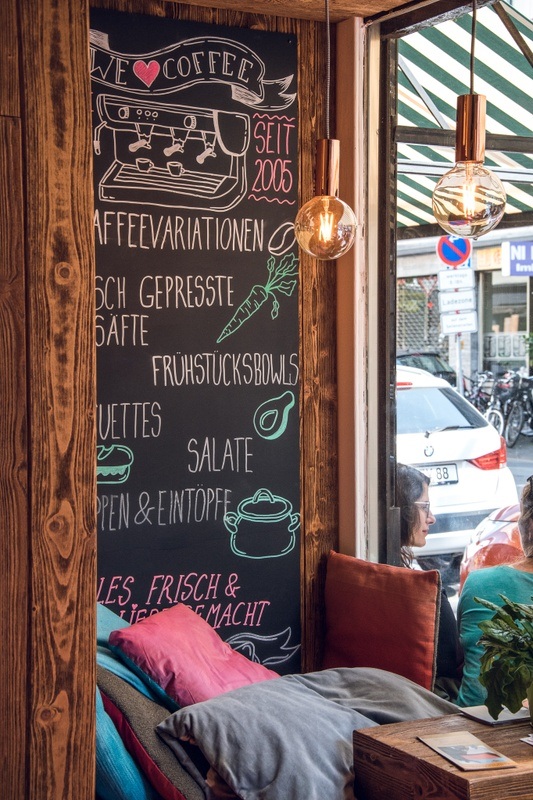 WE COFFEE
SEIT
2005
AFFEEVARIATIONEN
SCH GEPRESSTE
SÄFTE
FRÜHSTÜCKSBOWLS
UETTES
SALATE
PPEN & EINTÖPFE
LES FRISCH &
GEMACHT
NI
Ladezone
88